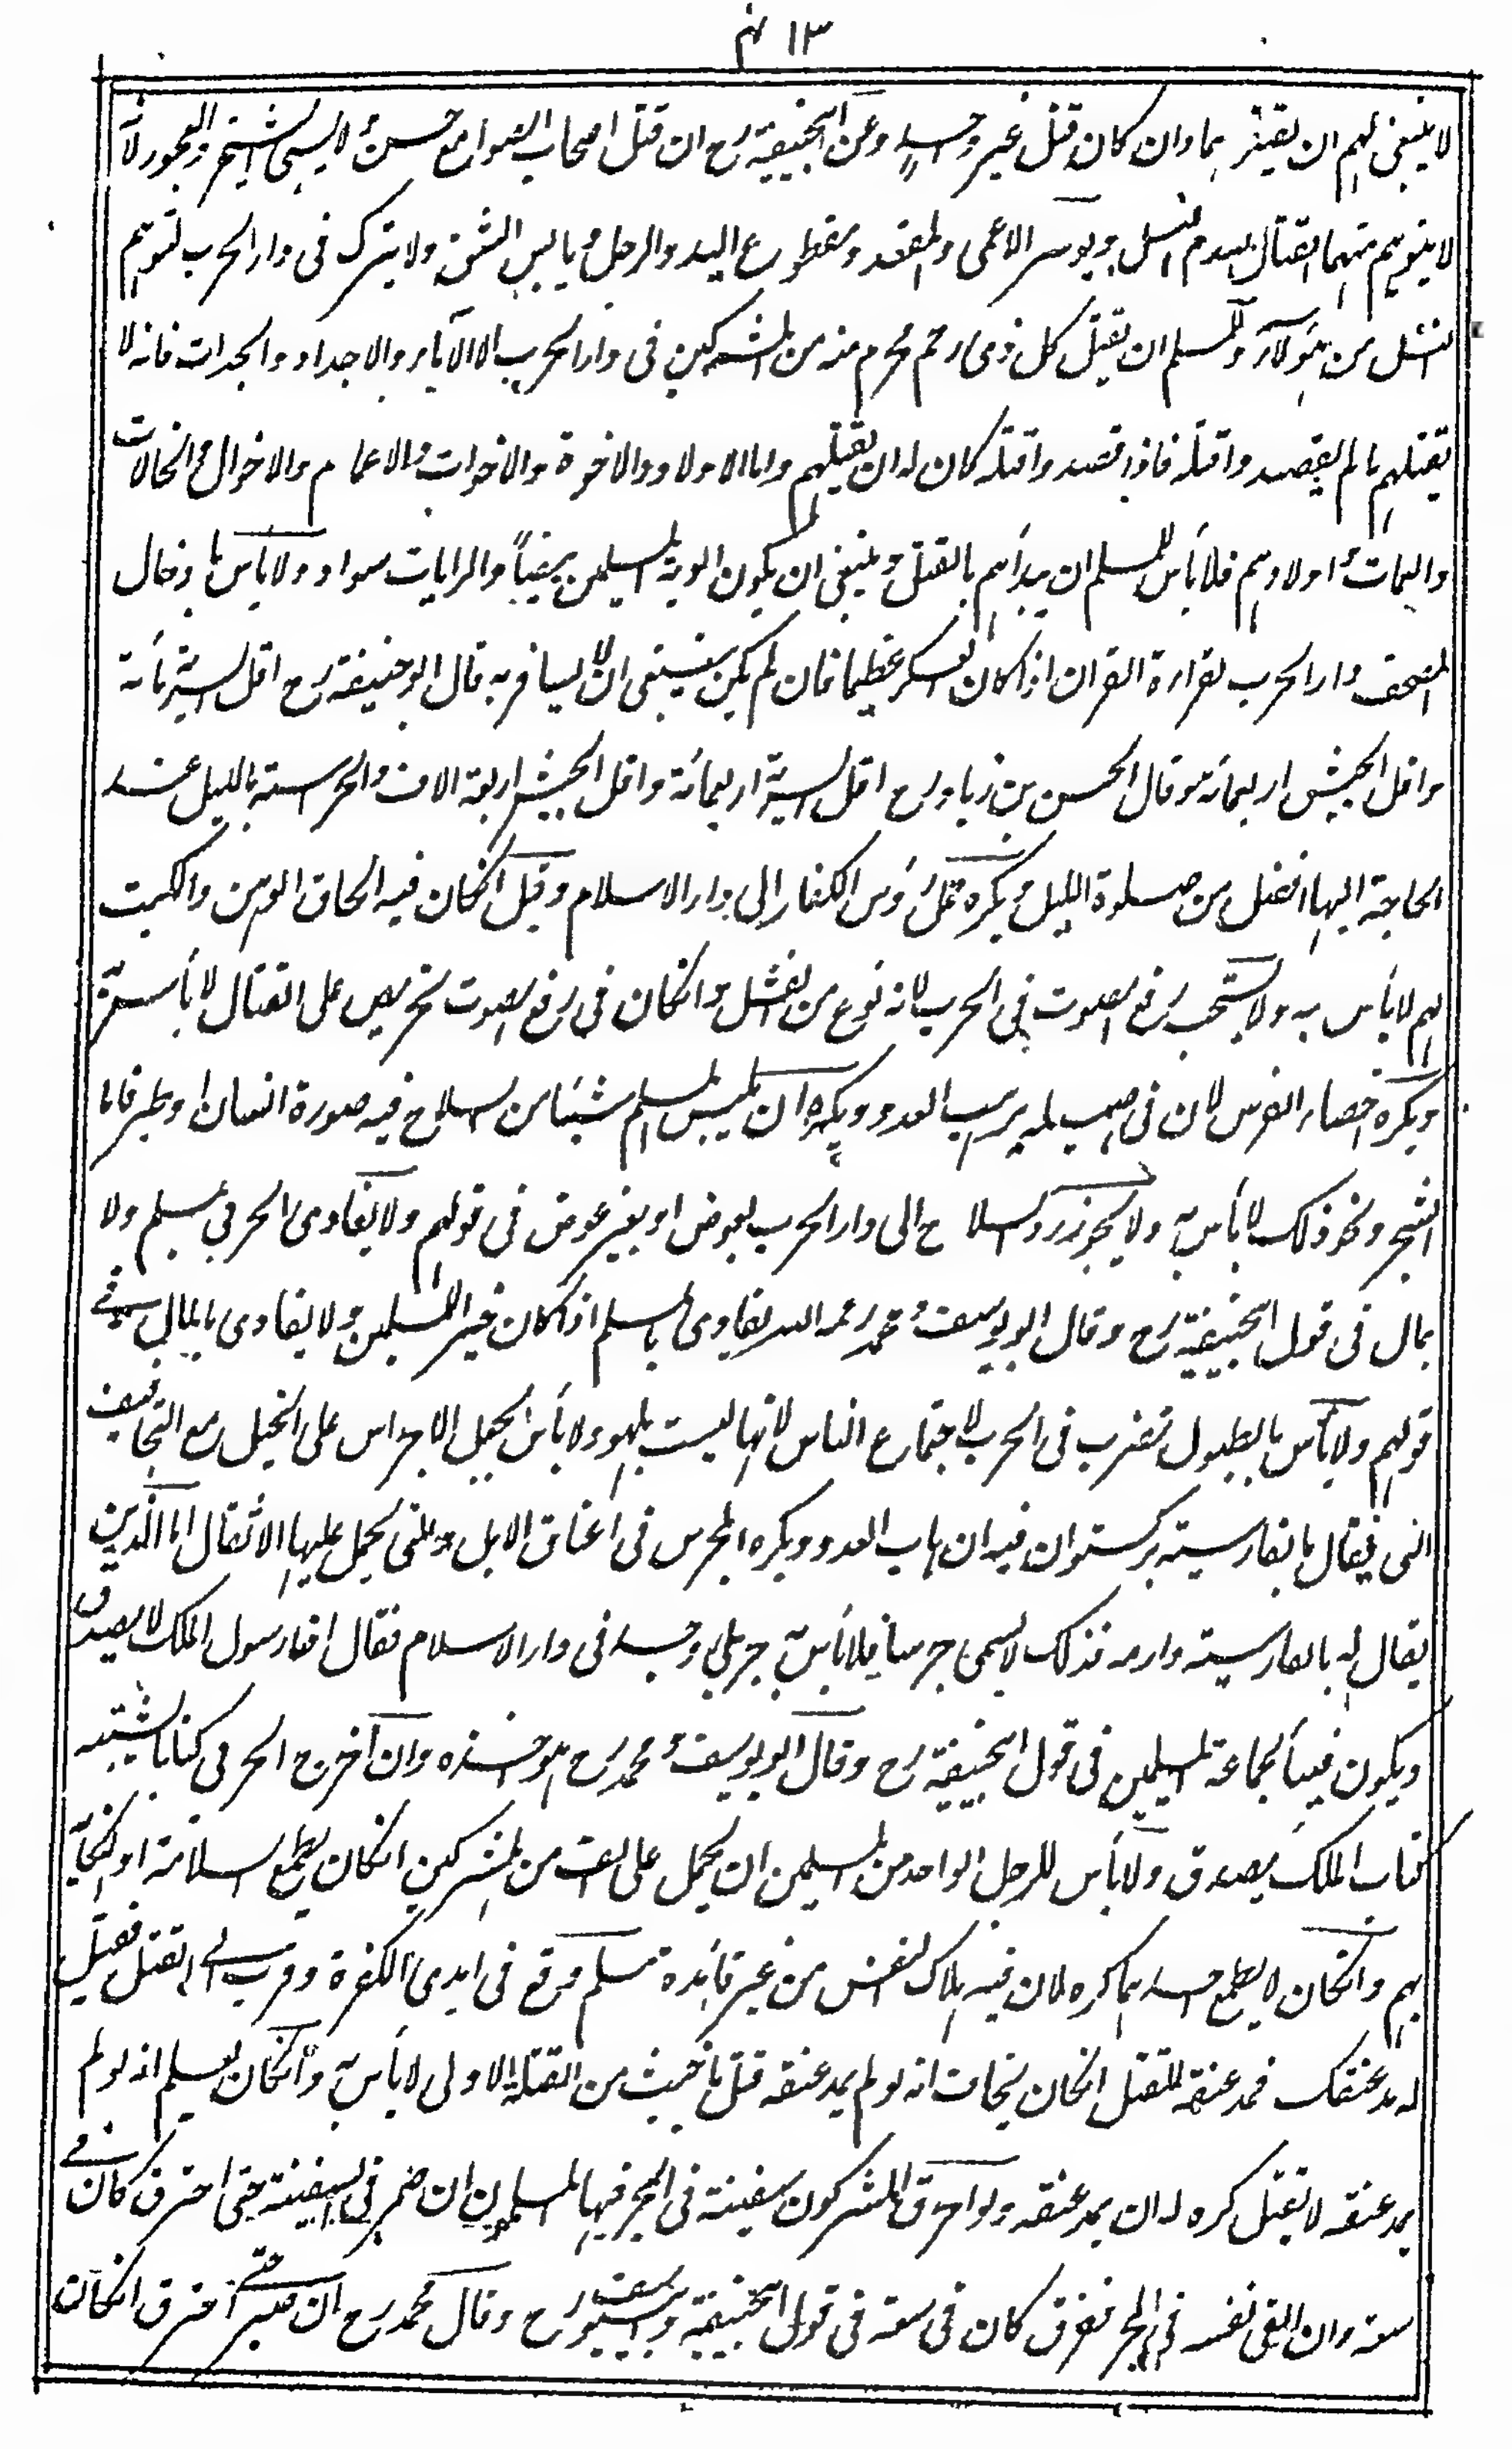 ٤١٣
لا ينبغى لهم ان يقيموا بها وان كان قتل غير واحد وعن ابيحنيفة رح ان قتل اصحاب الصوامع حسن ولا يسبى الشيخ والعجوز لانه
لا يتوهم منهما القتال بعدم النسل ويوسر الاعمى والمقعد ومقطوع اليد والرجل ويابس الشق ولا يترك فى دار الحرب لتوهم
النسل من هؤلاء وللمسلم ان يقتل كل ذى رحم محرم منه من المشركين فى دار الحرب الا الآباء والاجداد والجدات فانه لا
يقتلهم ما لم يقصدوا قتله فاذا قصدوا قتله كان له ان يقتلهم واما الاولاد والاخوة والاخوات والاعمام والاخوال والخالات
والعمات واولادهم فلا بأس للمسلم ان يبدأهم بالقتل وينبغى ان يكون الوية المسلمين بيضاً والرايات سواد ولا بأس بادخال
المصحف دار الحرب لقراءة القران اذا كان العسكر عظيما فان لم يكن ينبغى ان لا يسافر به قال ابو حنيفة رح اقل السرية مائة
واقل الجيش اربعمائة وقال الحسن بن زياد رح اقل السرية اربعمائة واقل الجيش اربعة الاف والحراسة بالليل عند
الحاجة اليها افضل من صلوة الليل ويكره نقل رؤس الكفار الى دار الاسلام وقيل انكان فيه الحاق الوهن والكبت
لهم لا بأس به ولا يستحب رفع الصوت فى الحرب لانه نوع من الفشل وانكان فى رفع الصوت تحريص على القتال لا بأس به
ويكره خصاء الفرس لان فى صهيله يرهب العدو ويكره ان يلبس المسلم شيئا من السلاح فيه صورة انسان او طير فاما
الشجر ونحو ذلك لا بأس به ولا يجوز رد السلاح الى دار الحرب بعوض او بغير عوض فى قولهم ولا يفادى الحربى بمسلم ولا
بمال فى قول ابيحنيفة رح وقال ابو يوسف ومحمد رحمه الله يفادى بالمسلم اذا كان خير للمسلمين ولا يفادى بالمال فى
قولهم ولا بأس بالطبول تضرب فى الحرب لاجتماع الناس لانها ليست بلهو ولا بأس بجعل الاجراس على الخيل مع التجافيف
التى يقال بالفارسية بركستوان فيه ارهاب العدو ويكره الجرس فى اعناق الابل والتى يحمل عليها الاثقال اما الذين
يقال له بالفارسية وارمه فذلك لا يسمى جرسا فلا بأس به حربى وجد فى دار الاسلام فقال انا رسول الملك لا يصدق
ويكون فيئاً لجماعة المسلمين فى قول ابيحنيفة رح وقال ابو يوسف ومحمد رح هو لمن اخذه وان اخرج الحربى كتابا يشبه
كتاب الملك يصدق ولا بأس للرجل الواحد من المسلمين ان يحمل على الف من المشركين انكان يطمع السلامة او النكاية
بهم وانكان لا يطمع احدهما كره لان فيه اهلاك النفس من غير فائدة مسلم وقع فى ايدى الكفرة وقرب الى القتل فقيل
له مد عنقك فمد عنقه للقتل انكان يخاف انه لو لم يمد عنقه قتل باخبث من القتلة الاولى لا بأس به وانكان يعلم انه لو لم
يمد عنقه لا يقتل كره له ان يمد عنقه ولو احرق المشركون سفينة فى البحر فيها المسلمون ان صبر فى السفينة حتى احترق كان فى
سعة وان القى نفسه فى البحر فغرق كان فى سعة فى قول ابيحنيفة وابى يوسف رح وقال محمد رح ان صبر حتى احترق انكان